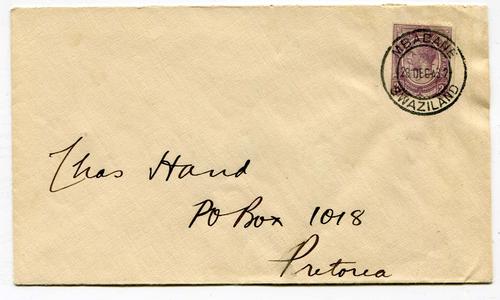 MBABANE
SWAZILAND
Chas Hand
PO Box 1018
Pretoria